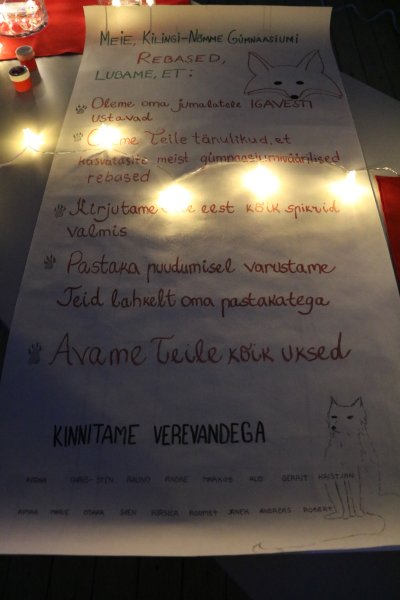 MEIE, KILINGI-NÕMME GÜMNAASIUMI
REBASED,
LUBAME, ET:
Oleme oma jumalatele IGAVESTI
ustavad
Teile tänulikud, et
kasvatasite meist gümnaasiumiväärilised
rebased
Kirjutame eest kõik spikrid
valmis
Pastaka puudumisel varustame
Teid lahkelt oma pastakatega
Avame Teile kõik uksed
KINNITAME VEREVANDEGA
CHRIS-STEN RAUNO ANDRE MARKUS GERRIT KRISTJAN
MARIE SVEN JANEK ANDREAS ROBERT